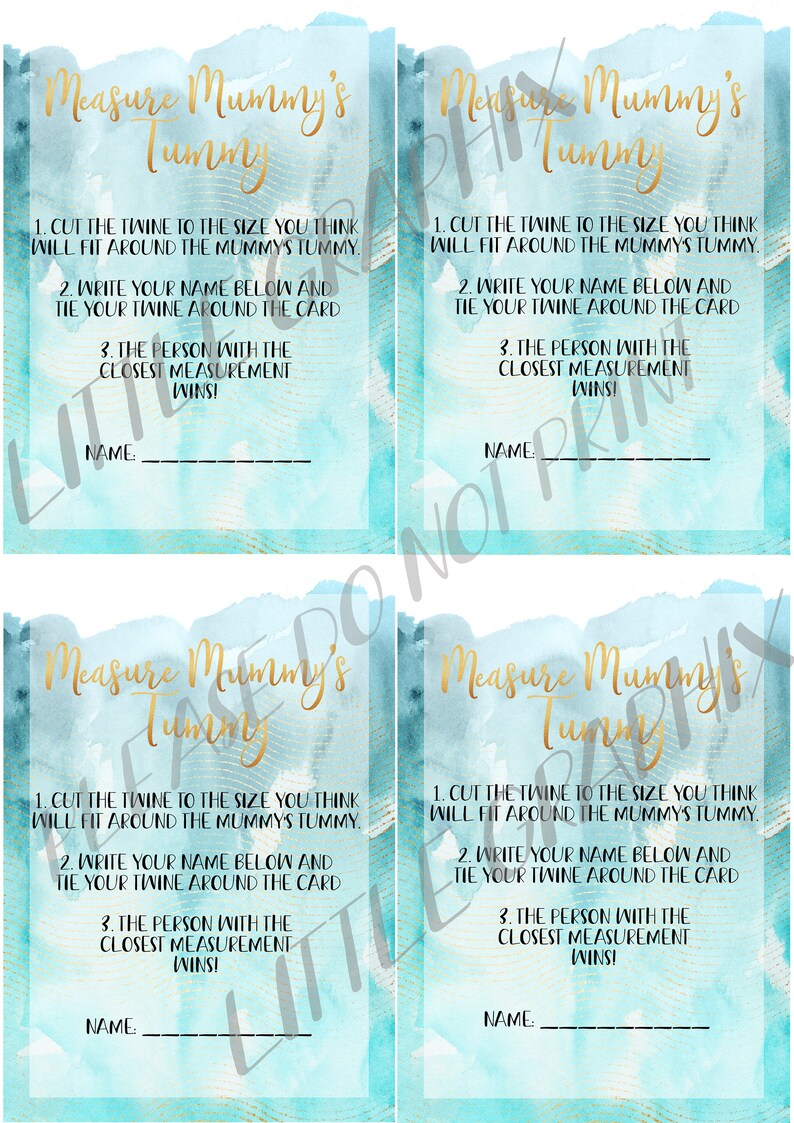 Measure Mummy's
Tummy
1. CUT THE TWINE TO THE SIZE YOU THINK
WILL FIT AROUND THE MUMMY'S TUMMY.
2. WRITE YOUR NAME BELOW AND
TIE YOUR TWINE AROUND THE CARD
3. THE PERSON WITH THE
CLOSEST MEASUREMENT
WINS!
NAME: __________
Measure Mummy's
Tummy
1. CUT THE TWINE TO THE SIZE YOU THINK
WILL FIT AROUND THE MUMMY'S TUMMY.
2. WRITE YOUR NAME BELOW AND
TIE YOUR TWINE AROUND THE CARD
3. THE PERSON WITH THE
CLOSEST MEASUREMENT
WINS!
NAME: __________
Measure Mummy's
Tummy
1. CUT THE TWINE TO THE SIZE YOU THINK
WILL FIT AROUND THE MUMMY'S TUMMY.
2. WRITE YOUR NAME BELOW AND
TIE YOUR TWINE AROUND THE CARD
3. THE PERSON WITH THE
CLOSEST MEASUREMENT
WINS!
NAME: __________
Measure Mummy's
Tummy
1. CUT THE TWINE TO THE SIZE YOU THINK
WILL FIT AROUND THE MUMMY'S TUMMY.
2. WRITE YOUR NAME BELOW AND
TIE YOUR TWINE AROUND THE CARD
3. THE PERSON WITH THE
CLOSEST MEASUREMENT
WINS!
NAME: __________
LITTLE GRAPHIX
PLEASE DO NOT PRINT
LITTLE GRAPHIX